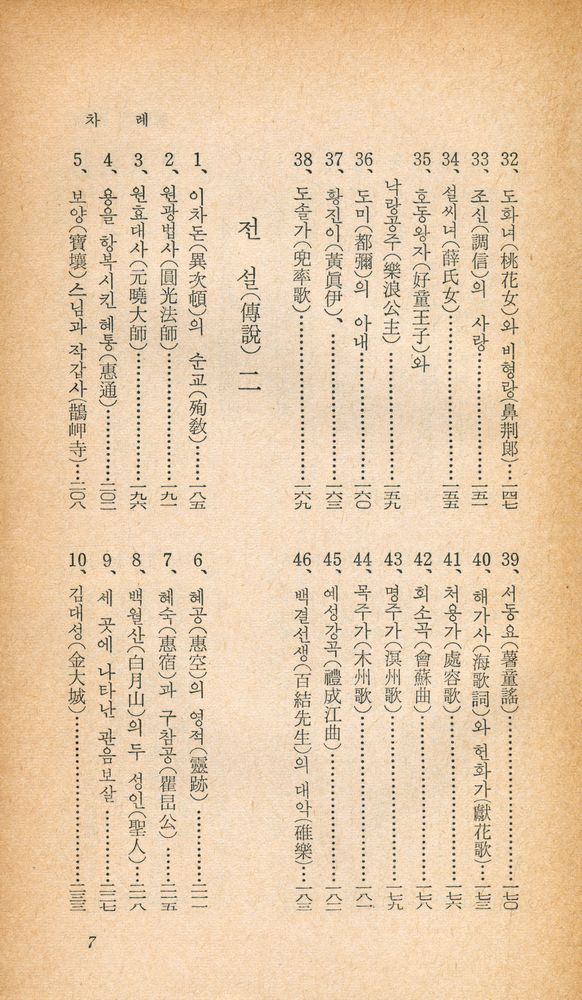 32、도화녀(桃花女)와 비형랑(鼻荆郞)…一四七
33、조신(調信)의 사랑……………一五一
34、설씨녀(薛氏女)……………一五五
35、호동왕자(好童王子)와
낙랑공주(樂浪公主)……………一五九
36、도미(都彌)의 아내……………一六〇
37、황진이(黃眞伊)、……………一六三
38、도솔가(兜率歌)……………一六九
39、서동요(薯童謠)……………一七〇
40、해가사(海歌詞)와 헌화가(獻花歌)…一七三
41、처용가(處容歌)……………一七六
42、회소곡(會蘇曲)……………一七八
43、명주가(溟州歌)……………一七九
44、목주가(木州歌)……………一八一
45、예성강곡(禮成江曲)……………一八二
46、백결선생(百結先生)의 대악(碓樂)…一八三
전 설(傳說) 二
1、이차돈(異次頓)의 순교(殉敎)……一八五
2、원광법사(圓光法師)……………一九一
3、원효대사(元曉大師)……………一九六
4、용을 항복시킨 혜통(惠通)………二〇二
5、보양(寶壤)스님과 작갑사(鵲岬寺)…二〇八
6、혜공(惠空)의 영적(靈跡)………二一一
7、혜숙(惠宿)과 구참공(瞿旵公)……二一五
8、백월산(白月山)의 두 성인(聖人)…二一八
9、세 곳에 나타난 관음보살………二二七
10、김대성(金大城)……………二三三
차 례
7